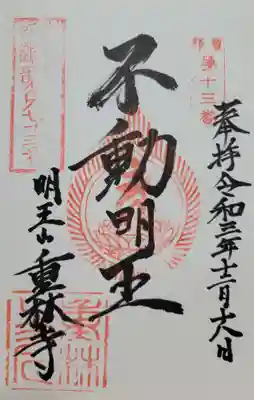 奉拝令和三年十二月十六日
第十三番
不動明王
明王山重林寺